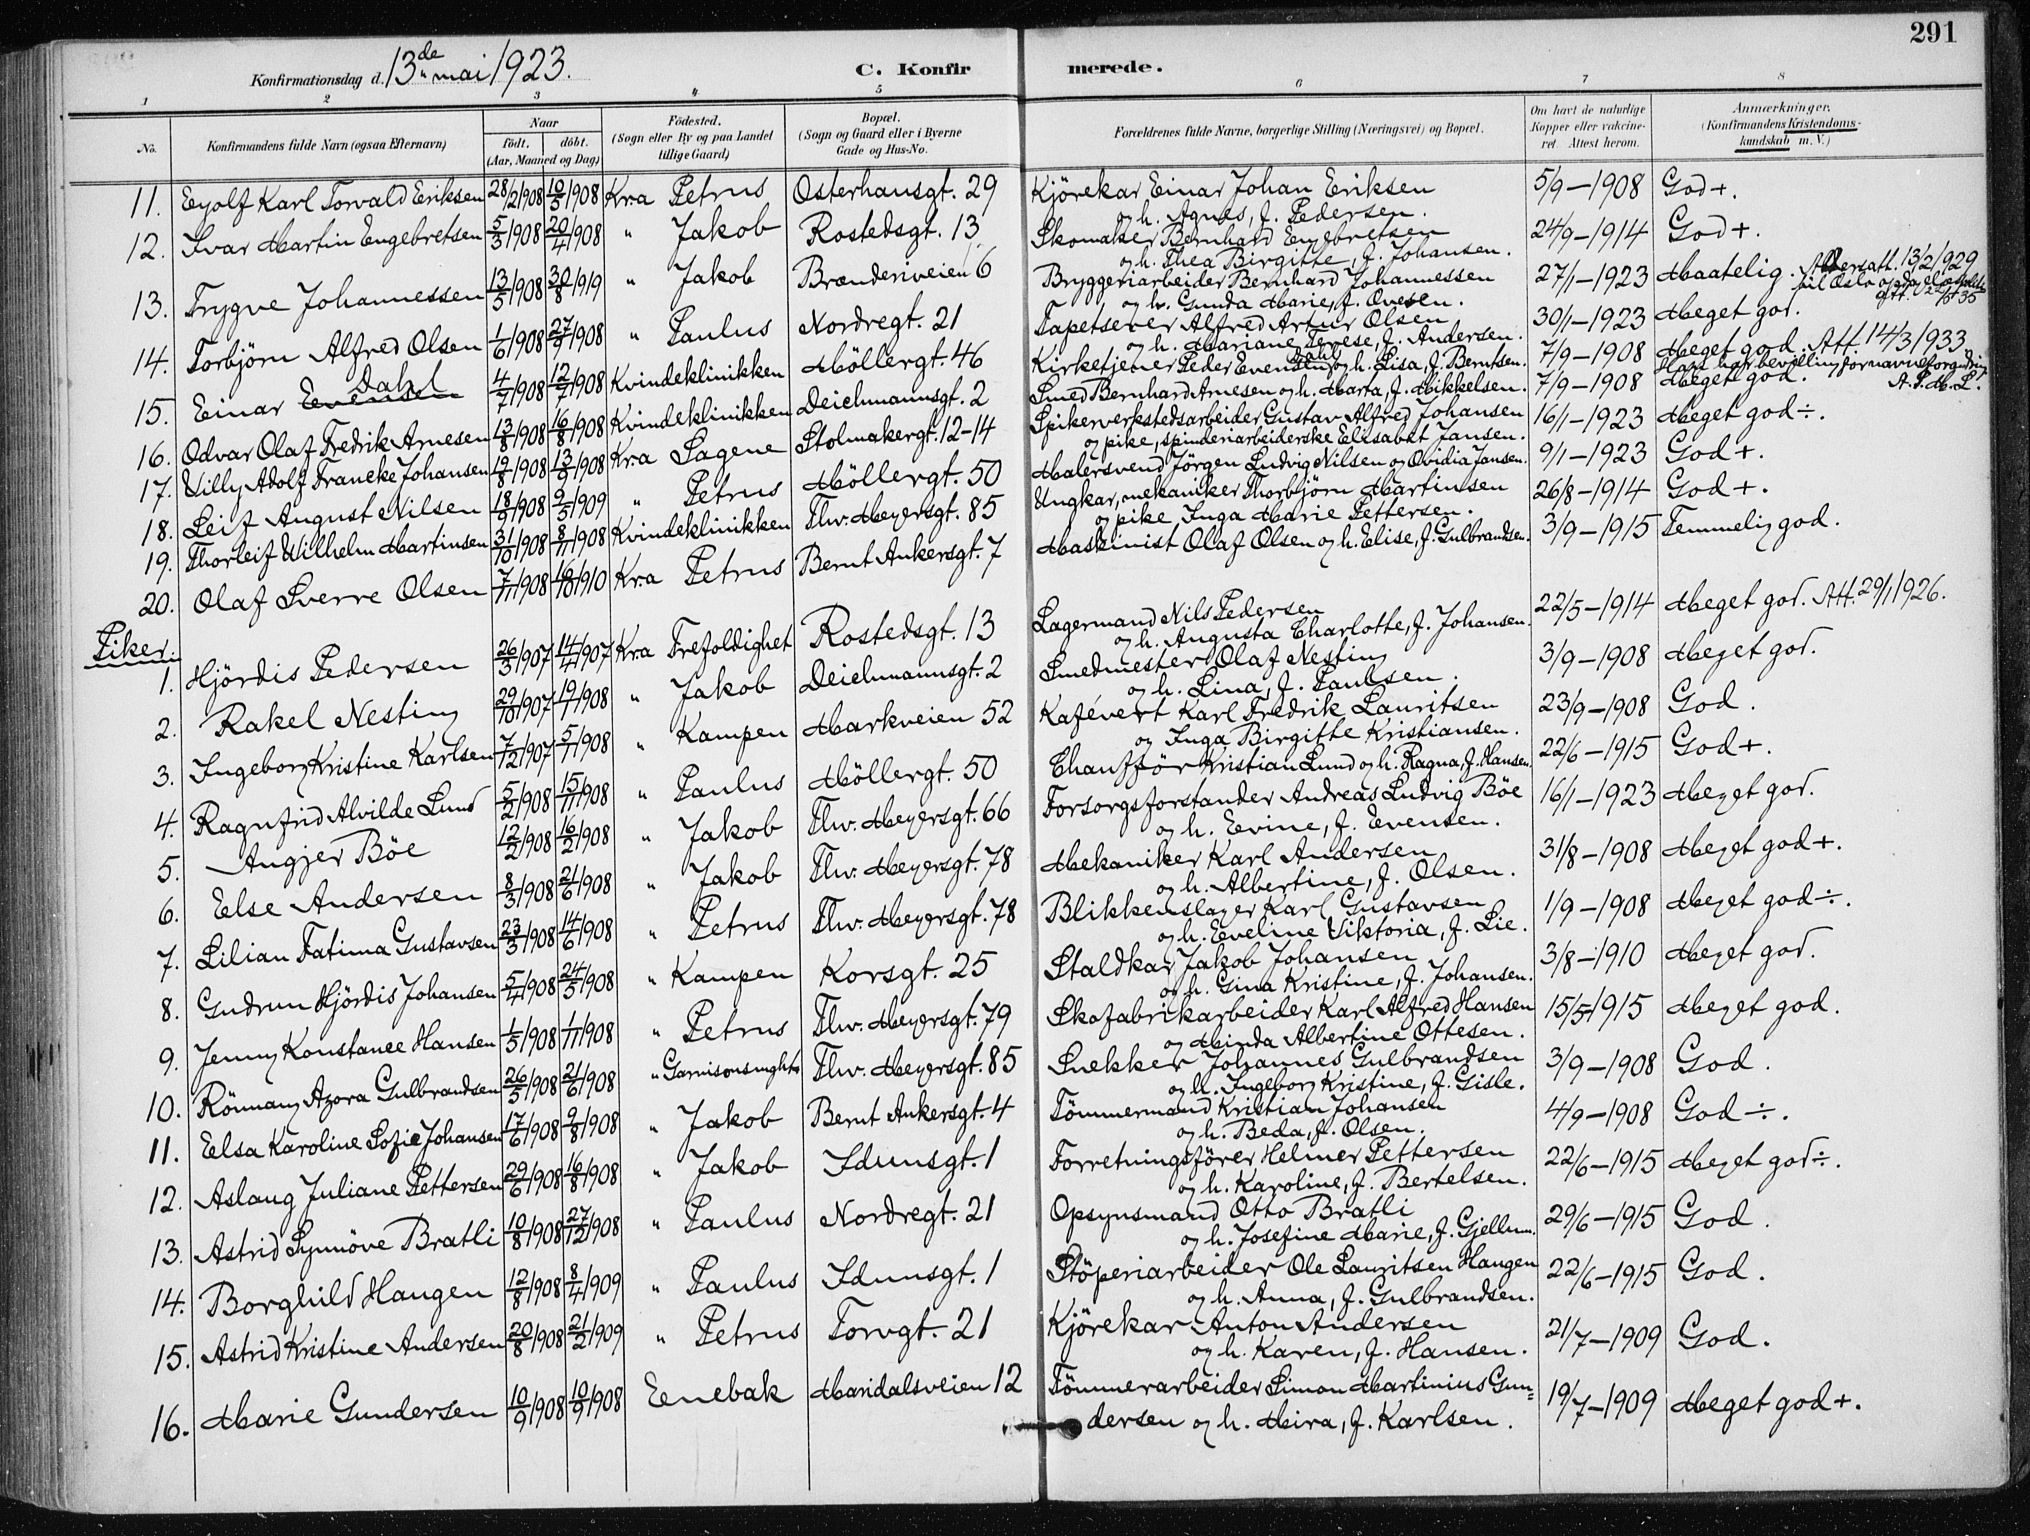 291
Konfirmationsdag d. 13de mai 1923. C. Konfir merede.
1 2 3 4 5 6 7 8
No. Konfirmandens fulde Navn (ogsaa Efternavn) Naar født. døbt. (Aar, Maaned og Dag) Fødested. (Sogn eller By og paa Landet tillige Gaard) Bopæl. (Sogn og Gaard eller i Byerne Gade og Hus-No. Forældrenes fulde Navne, borgerlige Stilling (Næringsvei) og Bopæl. Om havt de naturlige Kopper eller vaccineret. Attest herom. Anmærkninger. (Konfirmandens Kristendomskundskab m. V.)
11. Eyolf Karl Torvald Eriksen 28/2 1908 10/5 1908 Kr.a Petrus Osterhausgt. 29 Kjörekar Einar Johan Eriksen og h. Agnes, f. Pedersen. 5/9-1908 God+.
12. Ivar Martin Engebretsen 5/3 1908 20/4 1908 " Jakob Rostedsgt. 13 Skomaker Bernhard Engebretsen og h. Thea Birgitte, f. Johansen. 24/9-1914 God+.
13. Trygve Johannessen 13/5 1908 30/8 1919 " Jakob Brænderiveien 6 Bryggeriarbeider Bernhard Johannessen og h. Gunda Marie, f. Ovesen. 27/1-1923 Maatelig. 13/2 1929
14. Torbjörn Alfred Olsen 1/6 1908 27/9 1908 " Paulus Nordregt. 21 Tapetserer Alfred Artur Olsen og h. Mariane Terese, f. Andersen. 30/1-1923 Meget god.
15. Einar Evensen Dahl 4/7 1908 12/7 1908 Kvindeklinikken Möllergt. 46 Kirketjener Peder Evensen Dahl og h. Lisa, f. Berntsen. 7/9-1908 Meget god. Att. 14/3 1933 Han har bevilling for navneforandring
16. Odvar Olaf Fredrik Arnesen 13/8 1908 16/8 1908 Kvindeklinikken Deichmannsgt. 2 Smed Bernhard Arnesen og h. Marta, f. Mikkelsen. 7/9-1908 Meget god.
17. Villy Adolf Francke Johansen 19/8 1908 13/9 1908 Kr.a Sagene Stolmakergt. 12-14 Spikerverkstedsarbeider Gustav Alfred Johansen og pike, spinderiarbeiderske Elisabet Jansen. 16/1-1923 Meget god÷.
18. Leif August Nilsen 18/9 1908 9/5 1909 " Petrus Möllergt. 50 Malersvend Jörgen Ludvig Nilsen og Ovidia Jansen. 9/1-1923 God+.
19. Thorleif Wilhelm Martinsen 31/10 1908 8/11 1908 Kvindeklinikken Thv. Meyersgt. 85 Ungkar, mekaniker Thorbjörn Martinsen og pike Inga Marie Pettersen. 26/8-1914 God+.
20. Olaf Sverre Olsen 7/11 1908 16/10 1910 Kr.a Petrus Bernt Ankersgt. 7 Maskinist Olaf Olsen og h. Elise, f. Gulbrandsen. 3/9-1915 Temmelig god.
Piker.
1. Hjördis Pedersen 26/3 1907 14/4 1907 Kr.a Trefoldighet Rostedsgt. 13 Lagermand Nils Pedersen og h. Augusta Charlotte, f. Johansen. 22/5-1914 Meget god. Att. 29/1 1926.
2. Rakel Nesting 29/10 1907 19/1 1908 " Jakob Deichmannsgt. 2 Smedmester Olaf Nesting og h. Lina, f. Paulsen. 3/9-1908 Meget god.
3. Ingeborg Kristine Karlsen 7/12 1907 5/1 1908 " Kampen Markveien 52 Kafévert Karl Fredrik Lauritsen og Inga Birgitte Kristiansen. 23/9-1908 God.
4. Ragnfrid Alvilde Lund 5/2 1908 15/11 1908 " Paulus Möllergt. 50 Chauffför Kristian Lund og h. Ragna, f. Hansen. 22/6-1915 God+.
5. Angjer Böe 12/2 1908 16/2 1908 " Jakob Thv. Meyersgt. 66 Forsorgsforstander Andreas Ludvig Böe og h. Evine, f. Evensen. 16/1-1923 Meget god.
6. Else Andersen 8/3 1908 21/6 1908 " Jakob Thv. Meyersgt. 78 Mekaniker Karl Andersen og h. Albertine, f. Olsen. 31/8-1908 Meget god+.
7. Lilian Fatima Gustavsen 23/3 1908 14/6 1908 " Petrus Thv. Meyersgt. 78 Blikkenslager Karl Gustavsen og h. Eveline Viktoria, f. Lie. 1/9-1908 Meget god÷.
8. Gudrun Hjördis Johansen 5/4 1908 24/5 1908 " Kampen Korsgt. 25 Staldkar Jakob Johansen og h. Gina Kristine, f. Johansen. 3/8-1910 Meget god.
9. Jenny Konstance Hansen 1/5 1908 1/11 1908 " Petrus Thv. Meyersgt. 79 Skofabrikarbeider Karl Alfred Hansen og Minda Albertine Ottesen. 15/5-1915 Meget god.
10. Rönnaug Azora Gulbrandsen 26/5 1908 21/6 1908 " Garnisonsmght Thv. Meyersgt. 85 Snekker Johannes Gulbrandsen og h. Ingeborg Kristine, f. Gisle. 3/9-1908 God.
11. Elsa Karoline Sofie Johansen 17/6 1908 9/8 1908 " Jakob Bernt Ankersgt. 4 Tömmermand Kristian Johansen og h. Beda, f. Olsen. 4/9-1908 God÷.
12. Aslaug Juliane Pettersen 29/6 1908 16/8 1908 " Jakob Idunsgt. 1 Forretningsförer Helmer Pettersen og h. Karoline, f. Bertelsen. 22/6-1915 Meget god÷.
13. Astrid Synnöve Bratli 10/8 1908 27/12 1908 " Paulus Nordregt. 21 Opsynsmand Otto Bratli og h. Josefine Marie, f. Gjellum. 29/6-1915 God.
14. Borghild Haugen 12/8 1908 8/4 1909 " Paulus Idunsgt. 1 Stöperiarbeider Ole Lauritsen Haugen og h. Anna, f. Gulbrandsen. 22/6-1915 God.
15. Astrid Kristine Andersen 20/8 1908 21/2 1909 " Petrus Torvgt. 21 Kjörekar Anton Andersen og h. Karen, f. Hansen. 21/7-1909 God.
16. Marie Gundersen 10/9 1908 10/9 1908 Enebak Maridalsveien 12 Tömmerarbeider Simon Martinius Gundersen og h. Mira, f. Karlsen. 19/7-1909 Meget god+.